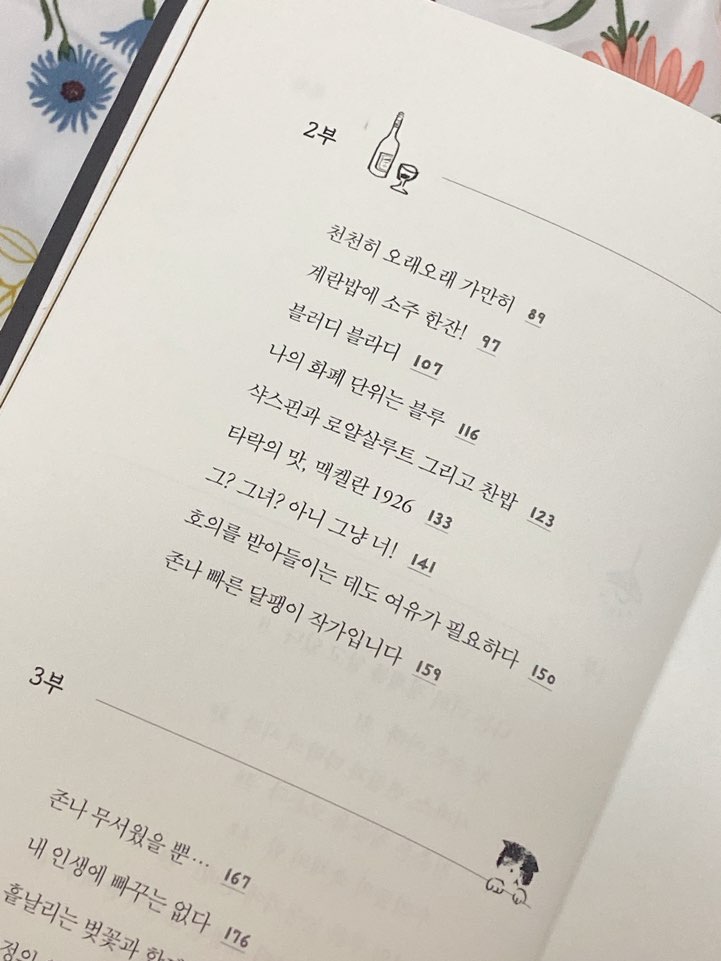 2부
천천히 오래오래 가만히 89
계란밥에 소주 한잔! 97
블러디 블라디 107
나의 화폐 단위는 블루 116
샥스핀과 로얄살루트 그리고 찬밥 123
타락의 맛, 맥켈란 1926 133
그? 그녀? 아니 그냥 너! 141
호의를 받아들이는 데도 여유가 필요하다 150
존나 빠른 달팽이 작가입니다 159
3부
존나 무서웠을 뿐… 167
내 인생에 빠꾸는 없다 176
흩날리는 벚꽃과